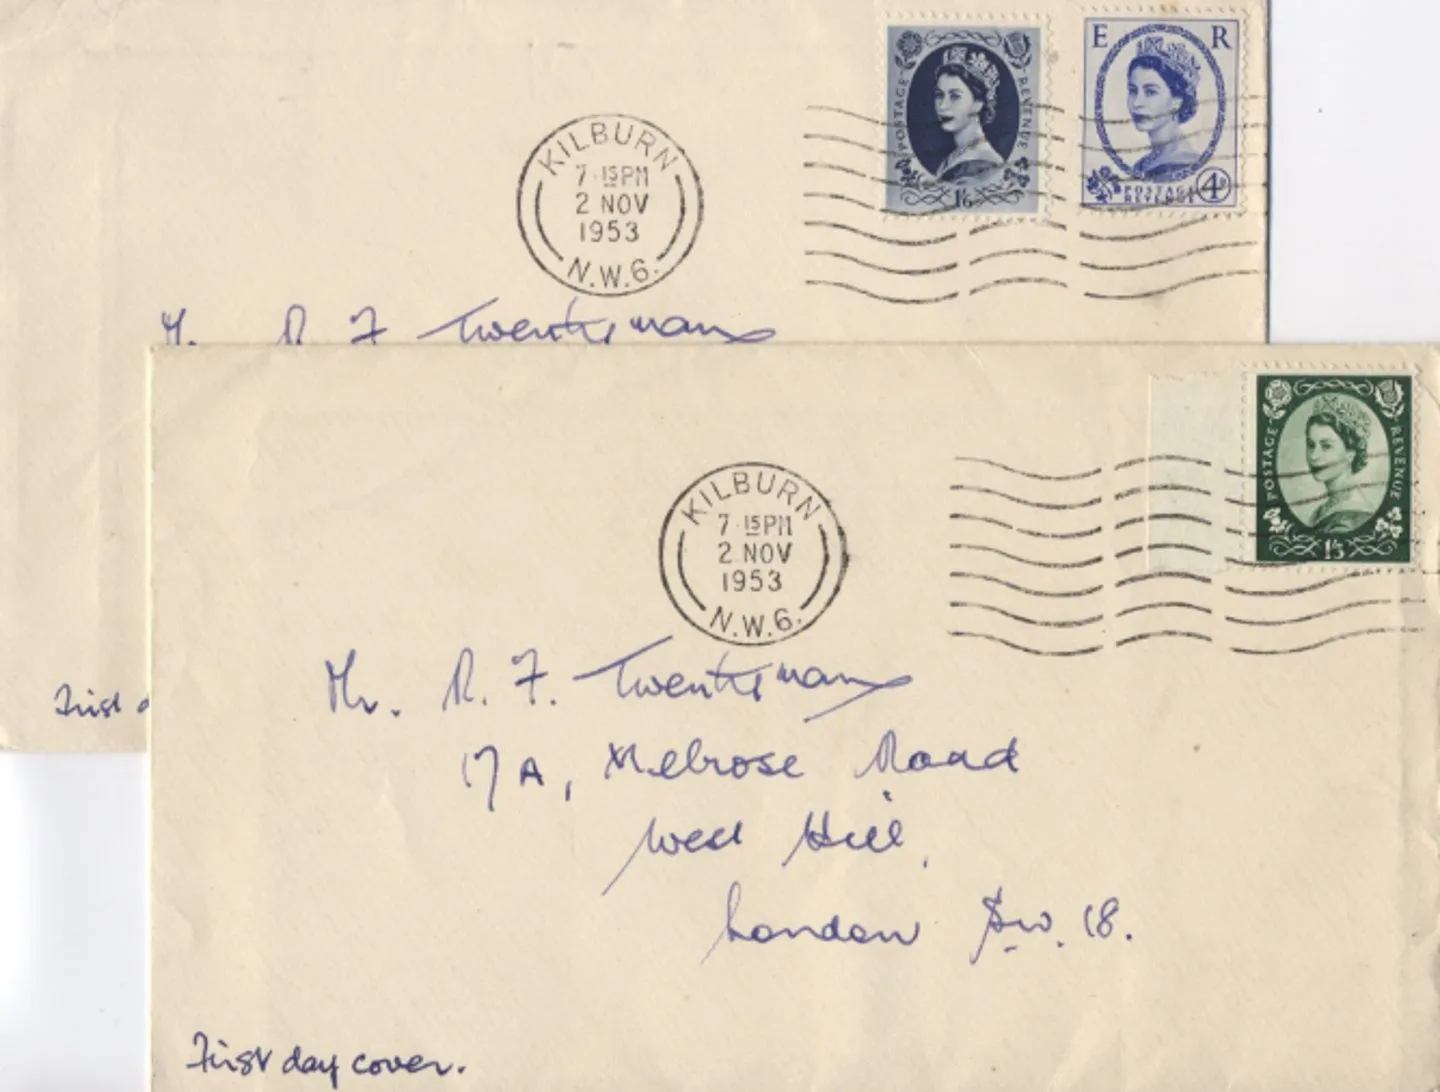 POSTAGE REVENUE 1/6
E R
POSTAGE
REVENUE 4D
KILBURN
7.15PM
2 NOV
1953
N.W.6.
Mr. R. F. Twentyman
First
POSTAGE REVENUE 1/3
KILBURN
7.15PM
2 NOV
1953
N.W.6.
Mr. R. F. Twentyman
17A, Melrose Road
West Hill,
London S.W. 18.
First day cover.